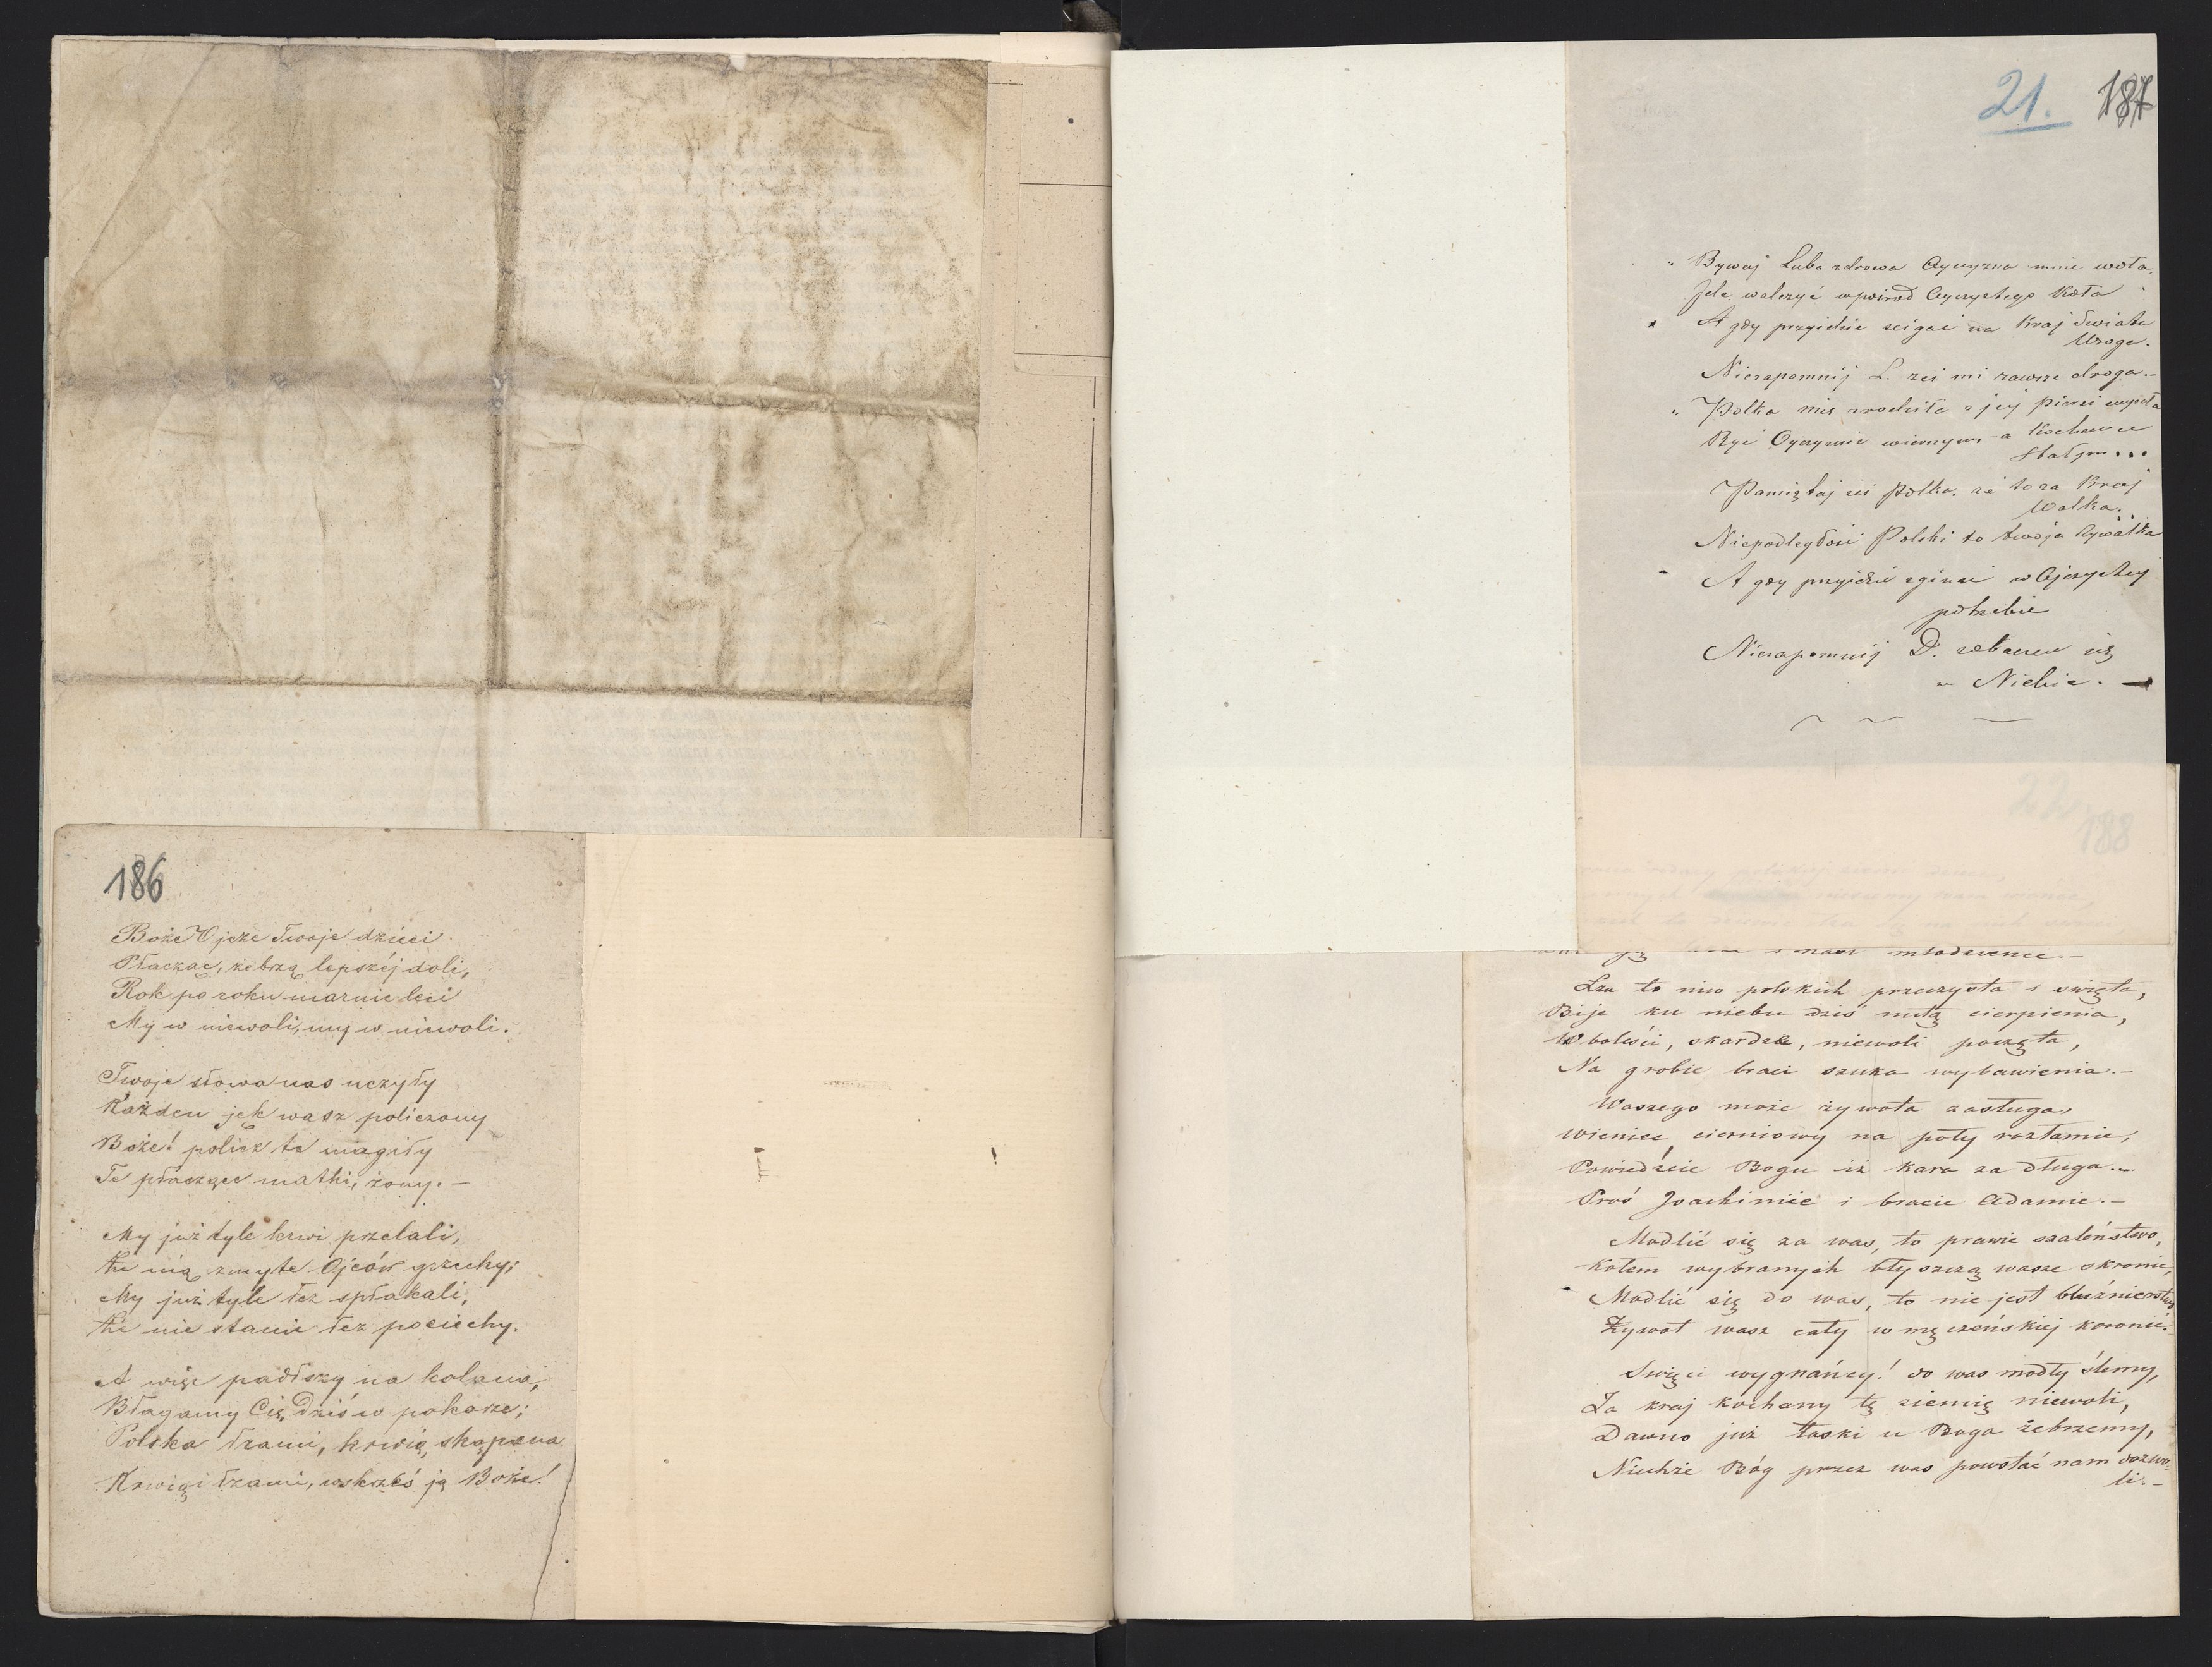 186
Boże Ojcze Twoje dzieci
Płacząc, żebrzą lepszéj doli,
Rok po roku marnie leci
My w niewoli, my w niewoli.
Twoje słowa nas uczyły
Każden jęk wasz policzony
Boże! policz te mogiły
Te płaczące matki, żony. —
My już tyle krwi przelali,
Że nią zmyte Ojców grzechy;
My już tyle łez spłakali,
Że nie stanie łez pociechy.
A więc padłszy na kolana,
Błagamy Cię, Dziś w pokorze;
Polska łzami, krwią, skąpana
Krwią i łzami, wskrześ ją Boże!
21. 187
Bywaj Luba zdrowa Ojczyzna mnie woła.
Idę walczyć wpośrod Ojczystego Koła
A gdy przyidzie scigać na Kraj Swiata
Wroga.
Niezapomnij L. żeś mi zawsze droga. —
Polka mię zrodziła z jej piersi
Być Ojczyznie wiernym — a Kochance
Stałym...
Pamiętaj żeś Polka, że to za Kraj
Walka..
Niepodległość Polski to twoja Rywalka
A gdy przyidzie zginąć w Ojczystej
potrzebie
Niezapomnij D. zobaczem się
w Niebie. —
22
188
młodzience. —
Łza to niw polskich przeczysta i święta,
Bije ku niebu dziś nutą cierpienia,
W boleści, skardze, niewoli poczęta,
Na grobie braci szuka wybawienia. —
Waszego może żywota zasługa,
Wieniec cierniowy na poły rozłamie,
Powiedźcie Bogu iż kara za długa. —
Proś Joachimie i bracie Adamie. —
Modlić się za was, to prawie szaleństwo,
Kołem wybranych błyszczą wasze skronie,
Modlić się do was, to nie jest bluźnierstwo
Żywot wasz cały w męczeńskiej koronie.
Święci wygnańcy! do was modły ślemy,
Za kraj kochany tę ziemię niewoli,
Dawno już łaski u Boga żebrzemy,
Niechże Bóg przez was powstać nam dozwo-
li. —